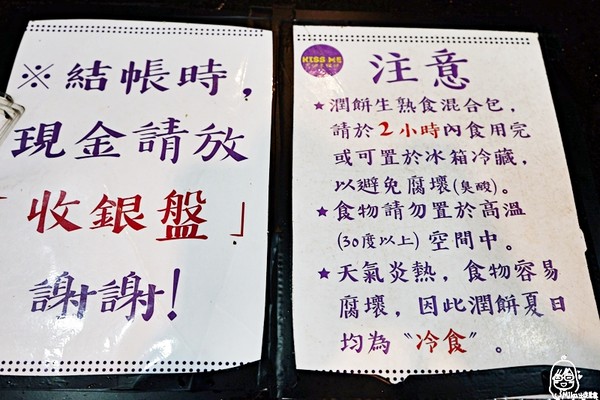 ※結帳時，
現金請放
「收銀盤」
謝謝！
KISS ME
注意
★潤餅生熟食混合包，
請於2小時內食用完
或可置於冰箱冷藏，
以避免腐壞(臭酸)。
★食物請勿置於高溫
(30度以上)空間中。
★天氣炎熱，食物容易
腐壞，因此潤餅夏日
均為〝冷食〞。